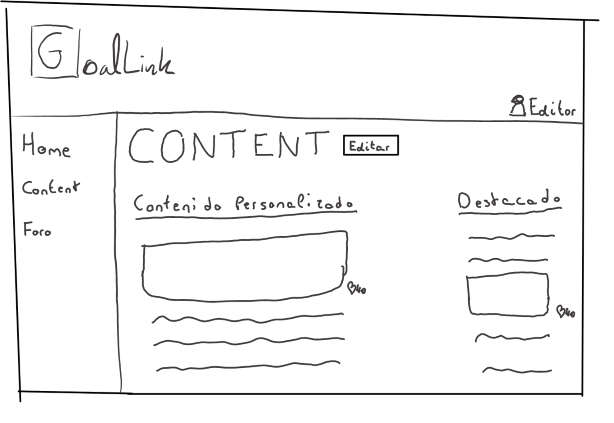 GoalLink
Editor
Home
Content
Foro
CONTENT Editar
Contenido Personalizado
Destacado